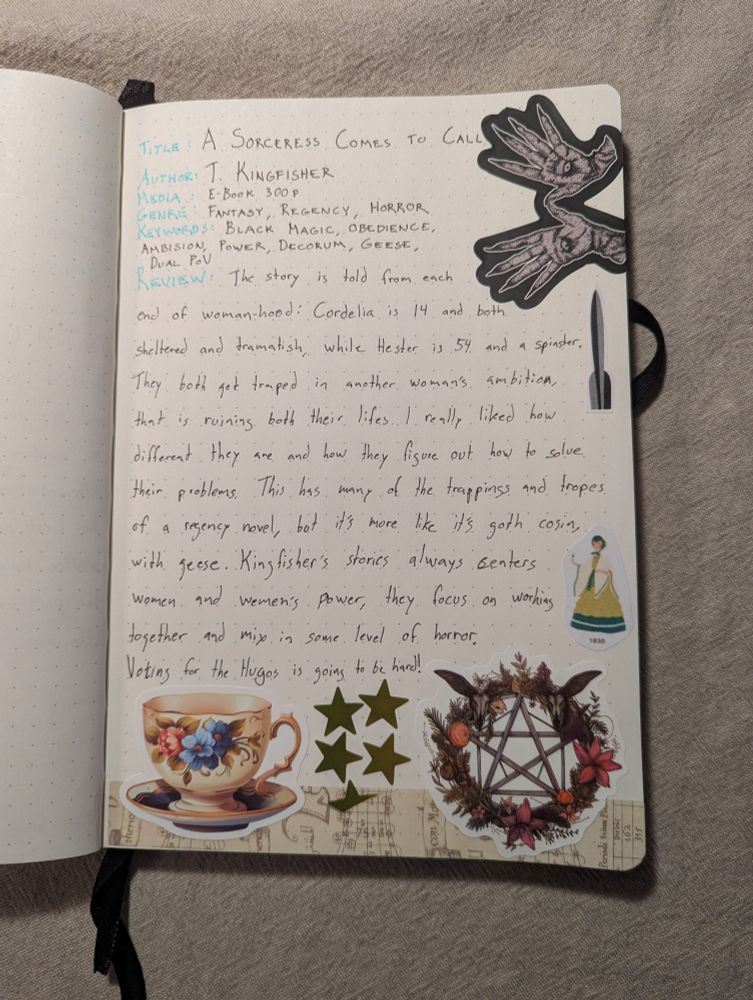 TITLE: A SORCERESS COMES TO CALL
AUTHOR: T. KINGFISHER
MEDIA: E-BOOK 300P
GENRE: FANTASY, REGENCY, HORROR
KEYWORDS: BLACK MAGIC, OBEDIENCE,
AMBISION, POWER, DECORUM, GEESE,
DUAL POV
REVIEW: The story is told from each
end of woman-hood: Cordelia is 14 and both
sheltered and tramatish, while Hester is 54 and a spinster.
They both get traped in another woman's ambition,
that is ruining both their lifes. I really liked how
different they are and how they figure out how to solve
their problems. This has many of the trappings and tropes
of a regency novel, but it's more like it's goth cosin,
with geese. Kingfisher's stories always centers
women and wemen's power, they focus on working
together and mix in some level of horror.
Voting for the Hugos is going to be hard!
1830